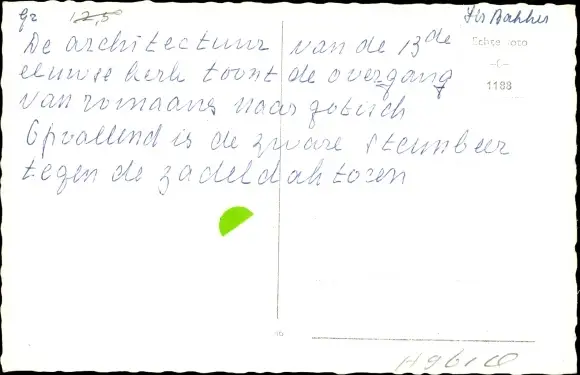 gr 12,5 Js Bakker
De architectuur van de 13de
eeuwse kerk toont de overgang
van romaans naar gotisch
Opvallend is de zware steunbeer
tegen de zadeldaktoren
Echte foto
-C-
1188